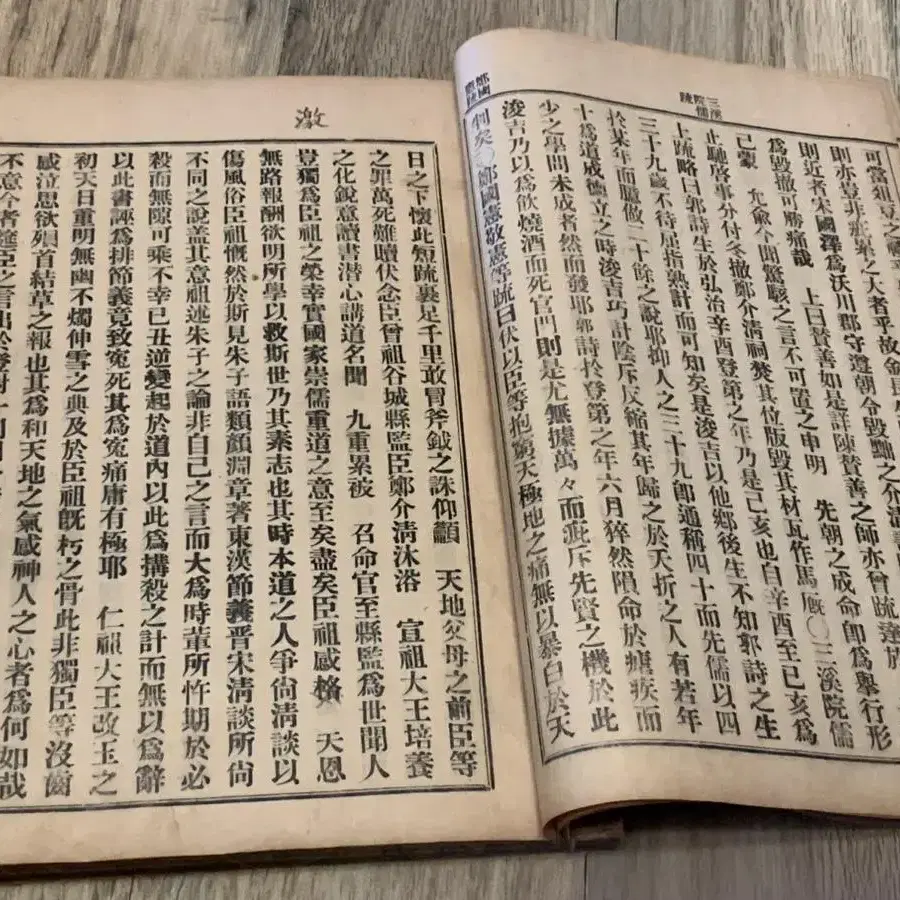 三溪院儒疏
鄭國憲疏
則亦豈非莊墓之大者乎故金長生
則近者宋國澤爲沃川郡守遵朝令毁黜之介清
爲毁撤可勝痛哉 上曰贊善如是詳陳贊善之師亦曾疏達於
已蒙 允兪今聞驚駭之言不可置之申明 先朝之成命卽爲擧行形
止馳啓事分付冬撤鄭介清祠焚其位版毁其材瓦作馬厩〇三溪院儒
上疏略曰郭詩生於弘治辛酉登第之年乃是己亥也自辛酉至己亥爲
三十九歲不待屈指熟計而可知矣是浚吉以他鄕後生不知郭詩之生
於某年而臆倣二十餘之說耶抑人之三十九卽通稱四十而先儒以四
十爲道成德立之時浚吉巧計陰斥反縮其年歸之於夭折之人有若年
少之學問未成者然而發耶郭詩於登第之年六月猝然隕命於瘧疾而
浚吉乃以爲欲燒酒而死官門則是尤無據萬々而疵斥先賢之機於此
判矣〇鄭國憲敬憲等疏曰伏以臣等抱窮天極地之痛無以暴白於天
激
日之下懷此短疏裹足千里敢冒斧鉞之誅仰籲 天地父母之前臣等
之罪萬死難贖伏念臣曾祖谷城縣監臣鄭介清沐浴 宣祖大王培養
之化說意讀書潛心講道名聞 九重累被 召命官至縣監爲世聞人
豈獨爲臣祖之榮幸實國家崇儒重道之意至矣盡矣臣祖感 天恩
無路報酬欲明所學以救斯世乃其素志也其時本道之人爭尙清談以
傷風俗臣祖慨然於斯見朱子語類顔淵章著東漢節義晋宋清談所尙
不同之說盖其意祖述朱子之論非自己之言而大爲時輩所忤期於必
殺而無隙可乘不幸己丑逆變起於道內以此爲搆殺之計而無以爲辭
以此書誣爲排節義竟致寃死其爲寃痛庸有極耶 仁祖大王改玉之
初天日重明無幽不燭伸雪之典及於臣祖旣朽之骨此非獨臣等沒齒
感泣思欲殞首結草之報也其爲和天地之氣感神人之心者爲何如哉
不意今者筵臣之言出於登對